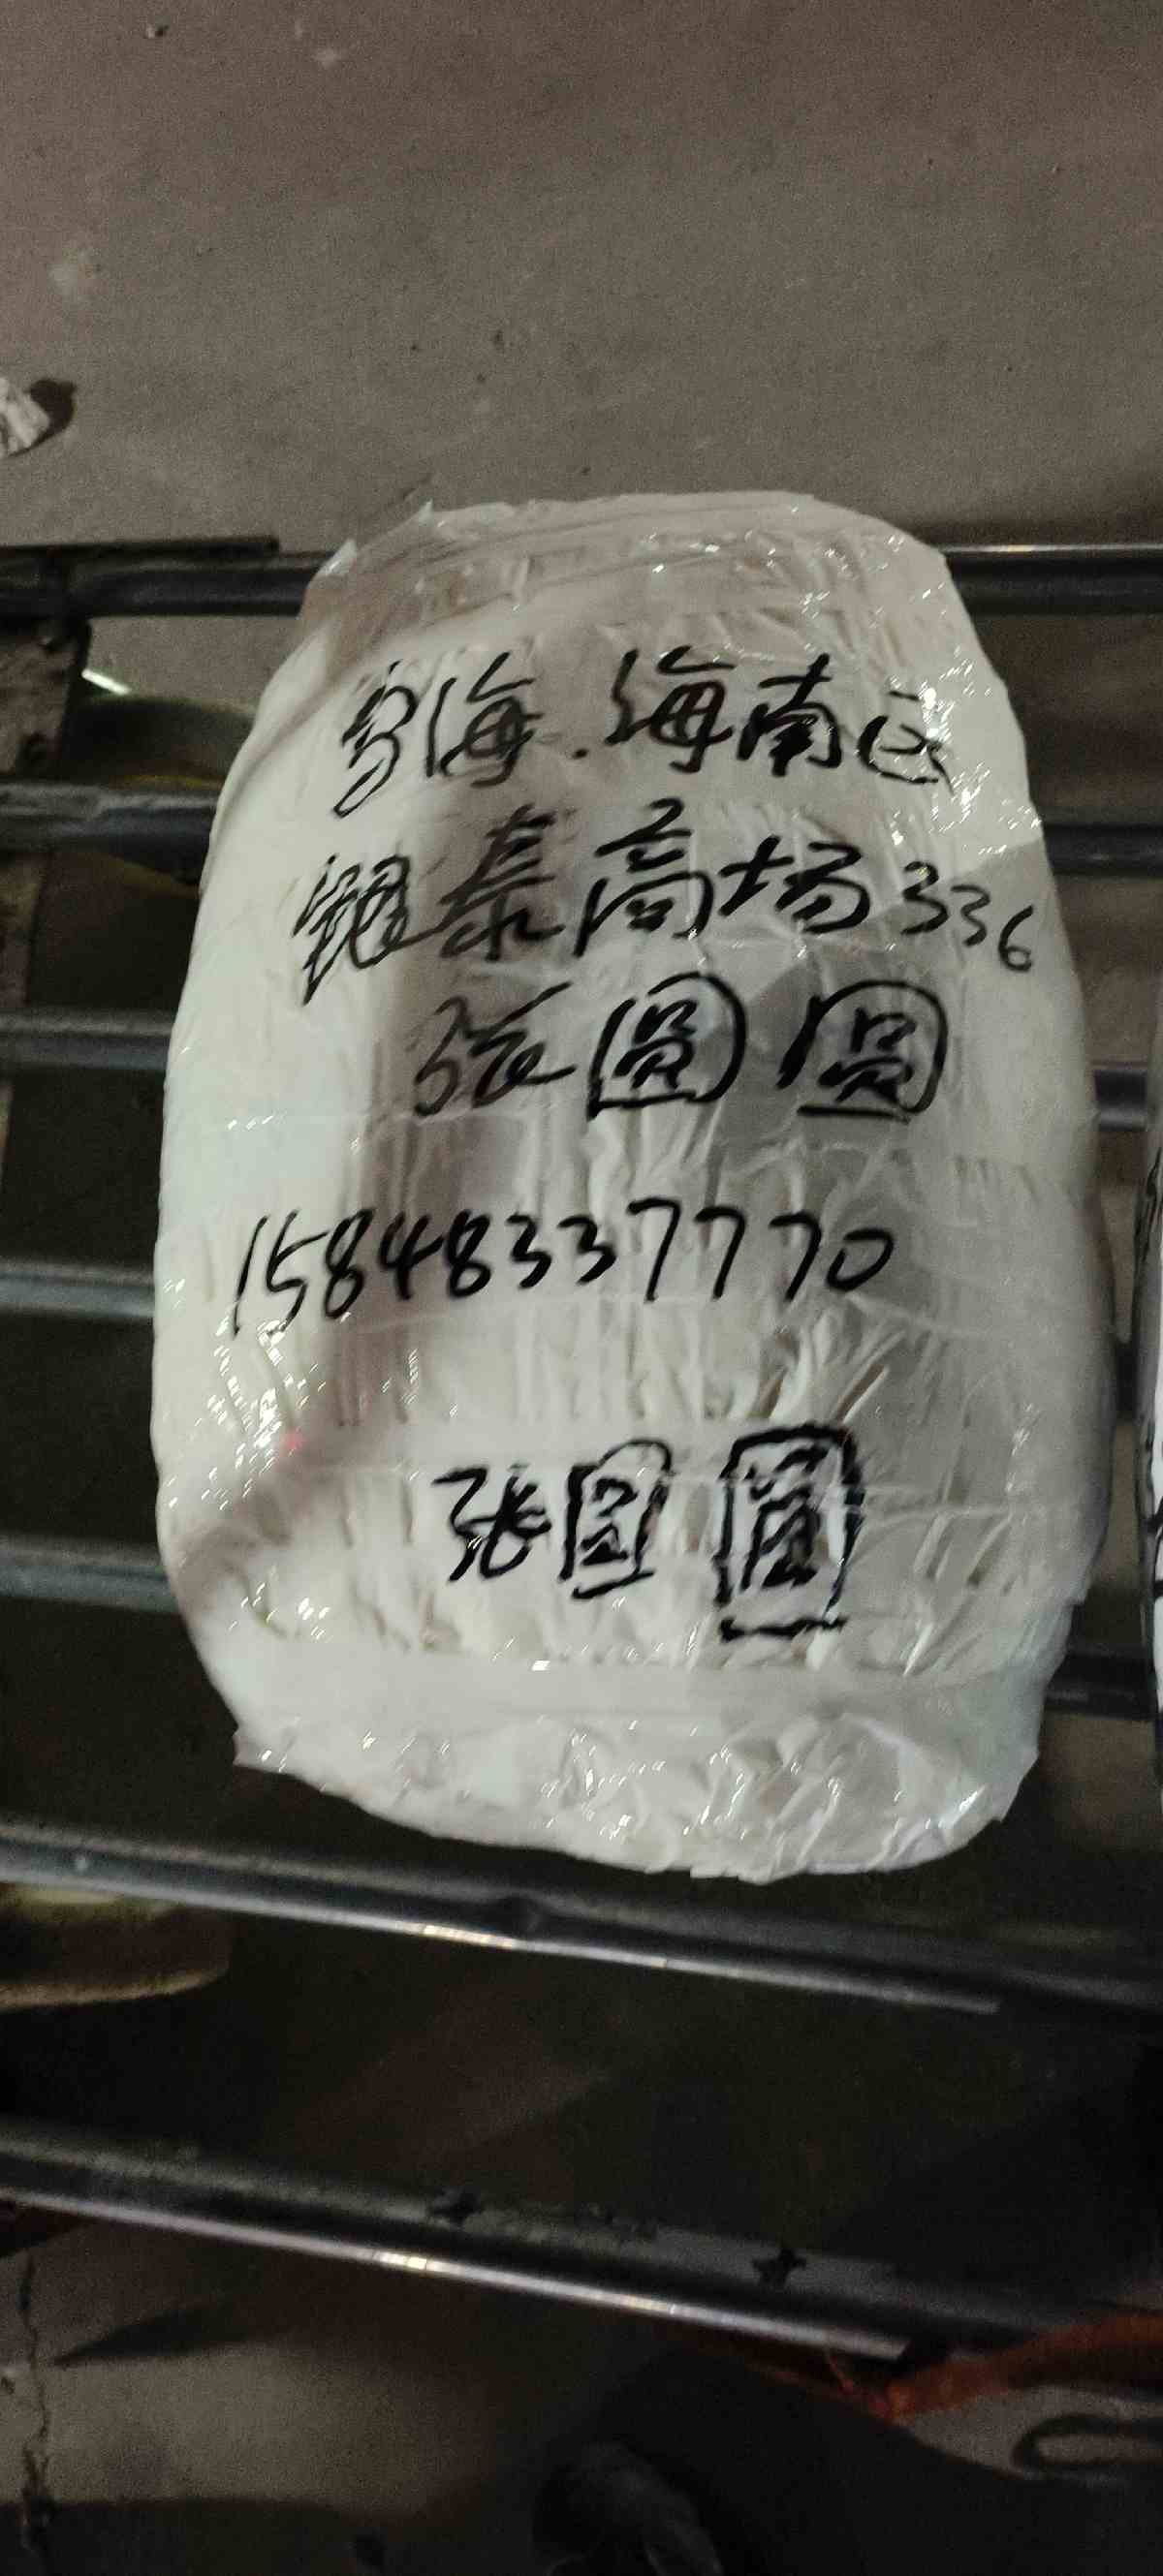 乌海.海南区
银泰商场336
张圆圆
15848337770
张圆圆